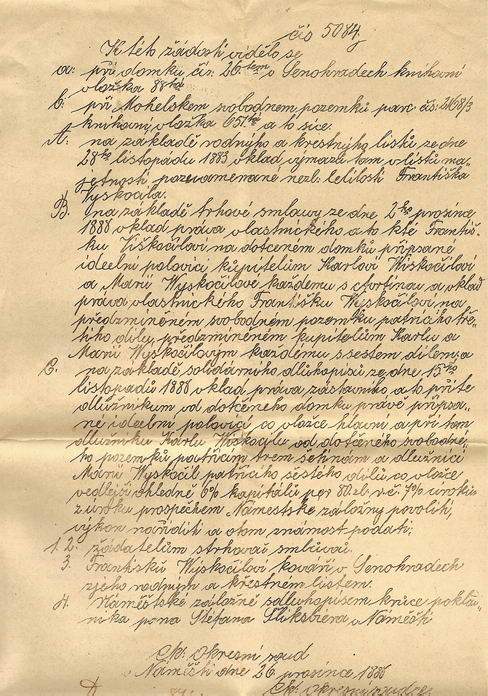 čís 5084
K této žádosti vidělo se
a: při domku čís. 26 tem v Senohradech knihovní
vložka 88 tá
b: při Mohelském svobodném pozemků parc čís: 2168/3
knihovný vložka 651 tá a to sice:
A: na základě rodného a křestného listů ze dne
28 ho listopadu 1885 vklad výmazu tam v listu ma-
jetnosti poznamenané nezletilosti Františka
Vyskočila.
B. na základě trhové smlouvy ze dne 2 ho prosince
1886 vklad práva vlastnického a to k té Františ-
ku Viškočilovi na dotčeném domků připsané
ideelní polovici kupitelům Karlovi Wiskočilovi
a Marii Wyskočilove každému s čtvrtinou a vklad
práva vlastnického Františku Wyskočilovi na
předzmíněném svobodném pozemku patřícího tře-
tího dílu, předzmíněném kupitelům Karlu a
Marii Wyskočilovým každému s šestem dílem; a
C. na základě solidárního dluhopisu ze dne 15 ho
listopadů 1886 vklad práva zástavního a to při té
dlužníkum od dotčeného domku právě připsa-
né ideelní polovici co vložce hlavní a při tom
dlužníku Karlu Wiskočilu od dotčeného svobodné-
ho pozemků patřícím
Marii Wyskočil patřícího šestého dílů co vložce
vedlejší ohledně 6% kapitálu per 80 zl. r.č. 7% úroků
z úroků prospěchem Náměstské záložny povolit,
výkon naříditi a otom známost podati;
1. 2. žadatelům strhovou smlouvou
3. Františků Wyskočilovi kováři v Senohradech
zjeho rodným a křestném listem.
4. Náměstské záložně sdluhopisem k ruce poklad-
níka pana Štefana v Náměšti
Ck. okresní soud
v Náměšti dne 26. prosince 1886
Ck. okresní soudce